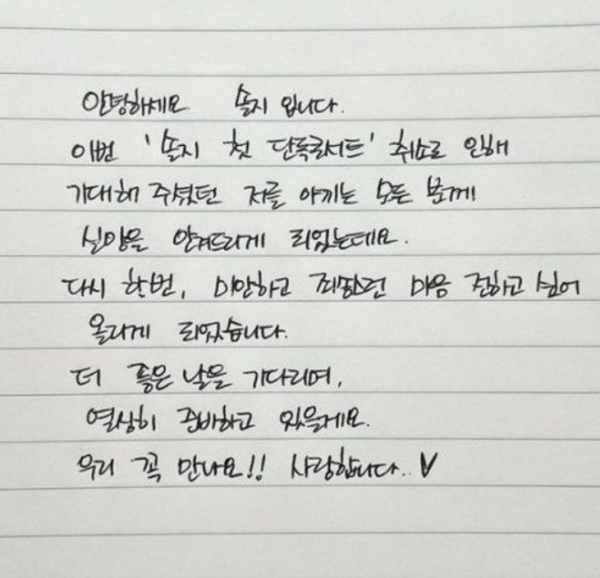 안녕하세요 솔지 입니다.
이번 '솔지 첫 단독콘서트' 취소로 인해
기대해 주셨던 저를 아끼는 모든 분께
실망을 안겨드리게 되었는데요.
다시 한번, 미안하고 죄송한 마음 전하고 싶어
올리게 되었습니다.
더 좋은 날을 기다리며,
열심히 준비하고 있을게요.
우리 꼭 만나요!! 사랑합니다..♥